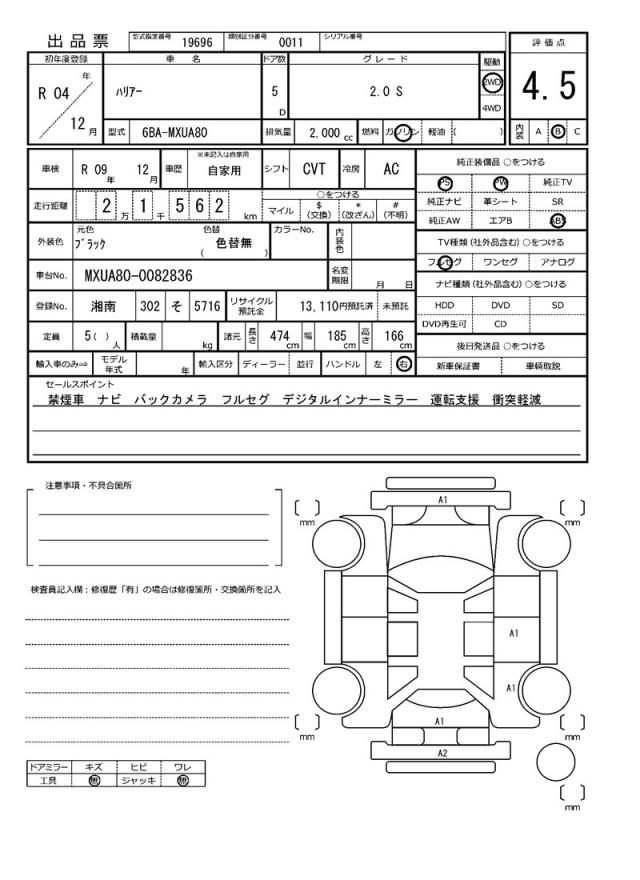 出品票 型式指定番号 19696 類別区分番号 0011 シリアル番号
評価点
4.5
内装 A B C
初年度登録 車名 ドア数 グレード 駆動
R 04 年 12 月
ハリアー 5 D 2.0 S 2WD 4WD
型式 6BA-MXUA80 排気量 2,000 cc 燃料 ガソリン 軽油 ( )
車検 R 09 年 12 月 車歴 ※未記入は自家用 自家用 シフト CVT 冷房 AC
走行距離 2 万 1 千 5 6 2 km
○をつける
マイル $ (交換) * (改ざん) # (不明)
外装色 元色 ブラック 色替 ( 色替無 ) カラーNo. 内装色
車台No. MXUA80-0082836 名変期限 月 日
登録No. 湘南 302 そ 5716 リサイクル預託金 13,110円預託済 未預託
定員 5( ) 人 積載量 kg 諸元 長さ 474 cm 幅 185 cm 高さ 166 cm
輸入車のみ⇒ モデル年式 年 輸入区分 ディーラー 並行 ハンドル 左 右
純正装備品 ○をつける
PS PW 純正TV
純正ナビ 革シート SR
純正AW エアB ABS
TV種類 (社外品含む) ○をつける
フルセグ ワンセグ アナログ
ナビ種類 (社外品含む) ○をつける
HDD DVD SD
DVD再生可 CD
後日発送品 ○をつける
新車保証書 車輌取説
セールスポイント
禁煙車 ナビ バックカメラ フルセグ デジタルインナーミラー 運転支援 衝突軽減
注意事項・不具合箇所
検査員記入欄：修復歴「有」の場合は修復箇所・交換箇所を記入
ドアミラー キズ ヒビ ワレ
工具 無 ジャッキ 無
A1
mm mm
A1
A1
A1
mm mm
A2
mm